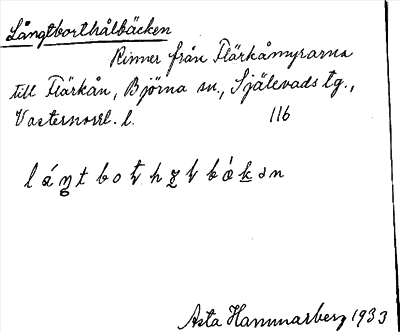 Långtborthålbäcken
Rinner från Flärkåmyrarna
till Flärkån, Björna sn., Själevads tg.,
Västernorrl. l. 116
Asta Hammarberg 1933